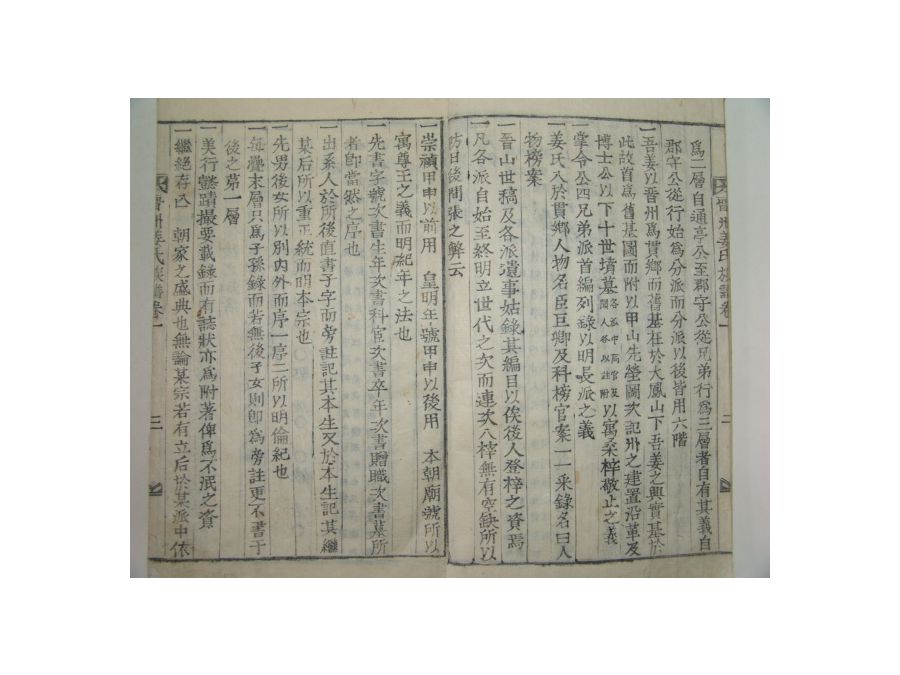 晋州姜氏族譜卷一
二
爲二層自通亭公至郡守公從兄弟行爲三層者自有其義自
郡守公從行始爲分派而分派以後皆用六階
一吾姜以晋州爲貫鄉而舊基在於大鳳山下吾姜之興實基於
此故首爲舊基圖而附以甲山先塋圖次記州之建置沿革及
博士公以下十世墳墓以寓桑梓敬止之義
一掌令公四兄弟派首編列錄以明長派之義
一姜氏入於貫鄉人物名臣巨卿及科榜官案一一采錄名曰人
物榜案
一晉山世稿及各派遺事姑錄其編目以俟後人登梓之資焉
一凡各派自始至終明立世代之次而連次入梓無有空缺所以
防日後間張之弊云
一崇禎甲申以前用 皇明年號甲申以後用 本朝廟號所以
寓尊王之義而明紀年之法也
一先書字號次書生年次書科宦次書卒年次書贈職次書墓所
者卽當然之序也
一出系人於所後直書子字而旁註記其本生又於本生記其繼
某后所以重正統而明本宗也
一先男後女所以別內外而序一序二所以明倫紀也
一每疊末層只爲子孫錄而若無後子女則卽爲旁註更不書于
後之第一層
一美行懿蹟撮要載錄而有誌狀亦爲附著俾爲不泯之資
一繼絕存亾 朝家之盛典也無論某宗若有立后於某派中依
晋州姜氏族譜卷一
三